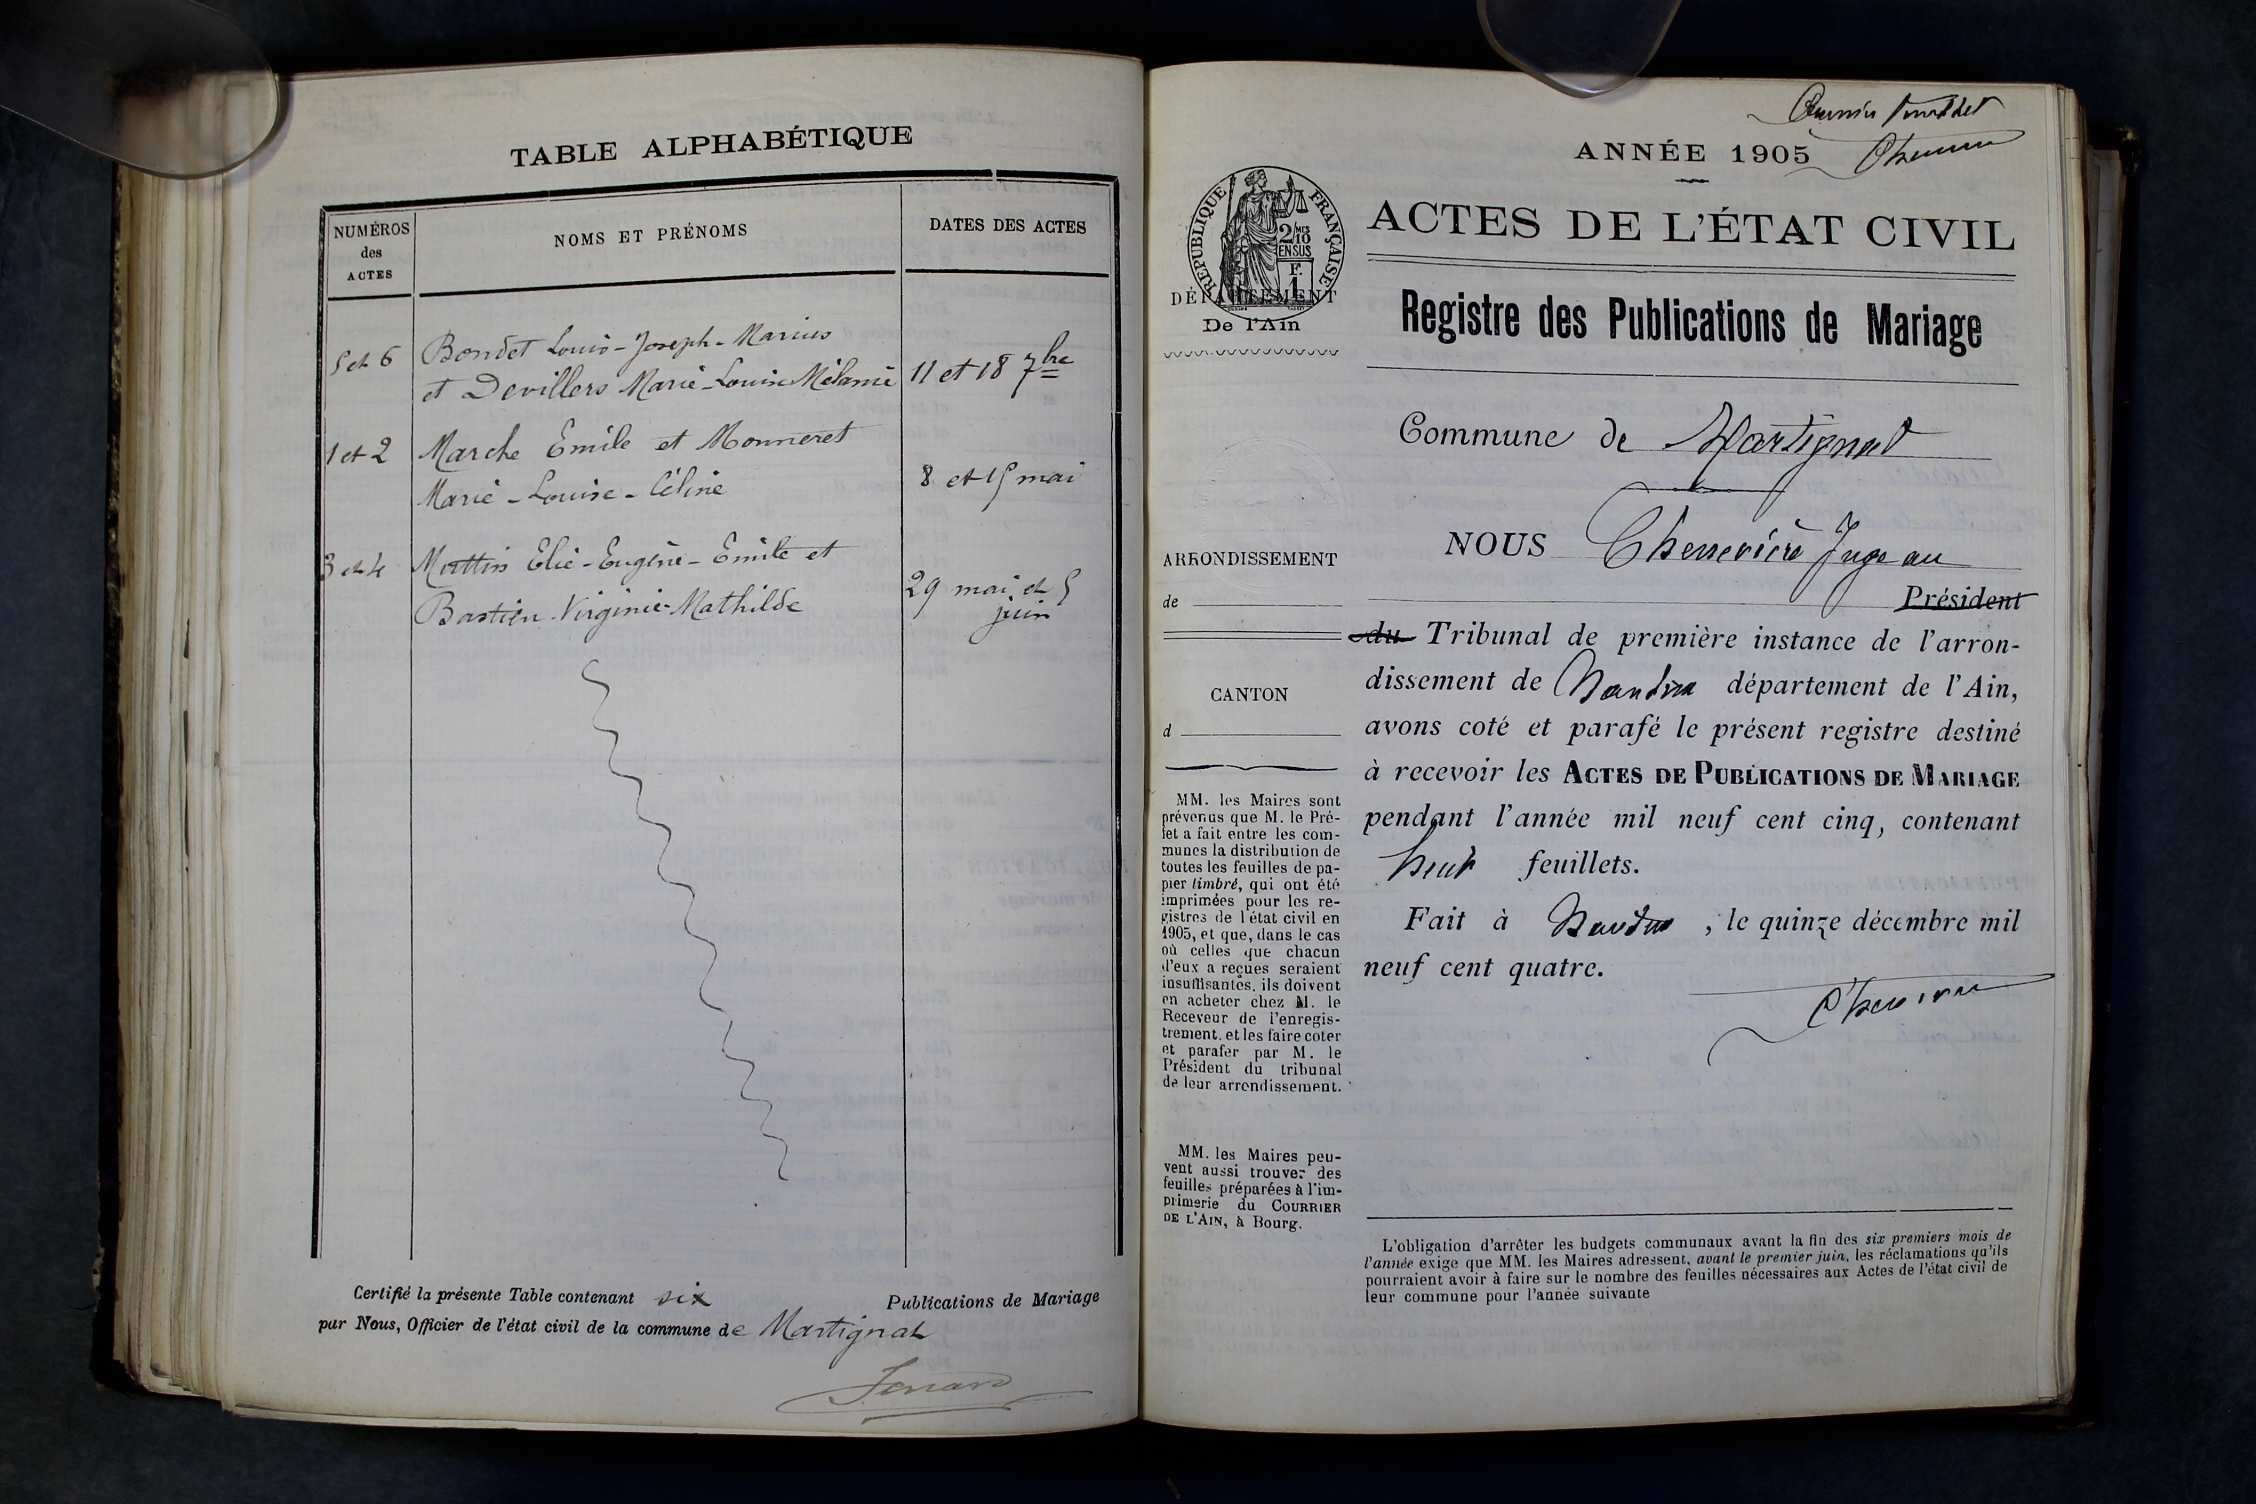 TABLE ALPHABÉTIQUE
NUMÉROS
des
ACTES
NOMS ET PRÉNOMS
DATES DES ACTES
5 et 6
Bondet Louis-Joseph-Marius
et Devillers Marie-Louise Mélanie
11 et 18 7bre
1 et 2
Marche Emile et Monneret
Marie-Louise-Céline
8 et 15 mai
3 et 4
Elie-Eugène-Emile et
Bastien Virginie-Mathilde
29 mai et 5
juin
Certifié la présente Table contenant six Publications de Mariage
par Nous, Officier de l'état civil de la commune de Martignat
Premier
ANNÉE 1905
RÉPUBLIQUE FRANÇAISE
2/10 MES
EN SUS
F.
1
DÉPARTEMENT
De l'Ain
ACTES DE L'ÉTAT CIVIL
Registre des Publications de Mariage
Commune de Martignat
ARRONDISSEMENT
de
CANTON
d
NOUS Chenevière Juge au
Président
du Tribunal de première instance de l'arron-
dissement de Nantua département de l'Ain,
avons coté et parafé le présent registre destiné
à recevoir les ACTES DE PUBLICATIONS DE MARIAGE
pendant l'année mil neuf cent cinq, contenant
huit feuillets.
Fait à Nantua , le quinze décembre mil
neuf cent quatre.
MM. les Maires sont
prévenus que M. le Pré-
fet a fait entre les com-
munes la distribution de
toutes les feuilles de pa-
pier timbré, qui ont été
imprimées pour les re-
gistres de l'état civil en
1905, et que, dans le cas
où celles que chacun
d'eux a reçues seraient
insuffisantes, ils doivent
en acheter chez M. le
Receveur de l'enregis-
trement, et les faire coter
et parafer par M. le
Président du tribunal
de leur arrondissement.
MM. les Maires peu-
vent aussi trouver des
feuilles préparées à l'im-
primerie du COURRIER
DE L'AIN, à Bourg.
L'obligation d'arrêter les budgets communaux avant la fin des six premiers mois de
l'année exige que MM. les Maires adressent, avant le premier juin, les réclamations qu'ils
pourraient avoir à faire sur le nombre des feuilles nécessaires aux Actes de l'état civil de
leur commune pour l'année suivante